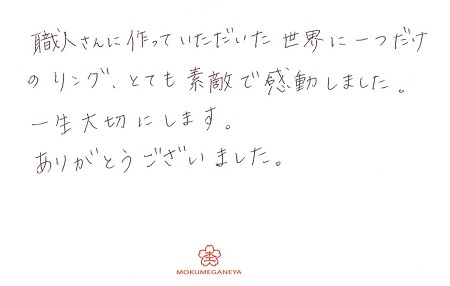 職人さんに作っていただいた世界に一つだけ
のリング、とても素敵で感動しました。
一生大切にします。
ありがとうございました。
MOKUMEGANEYA